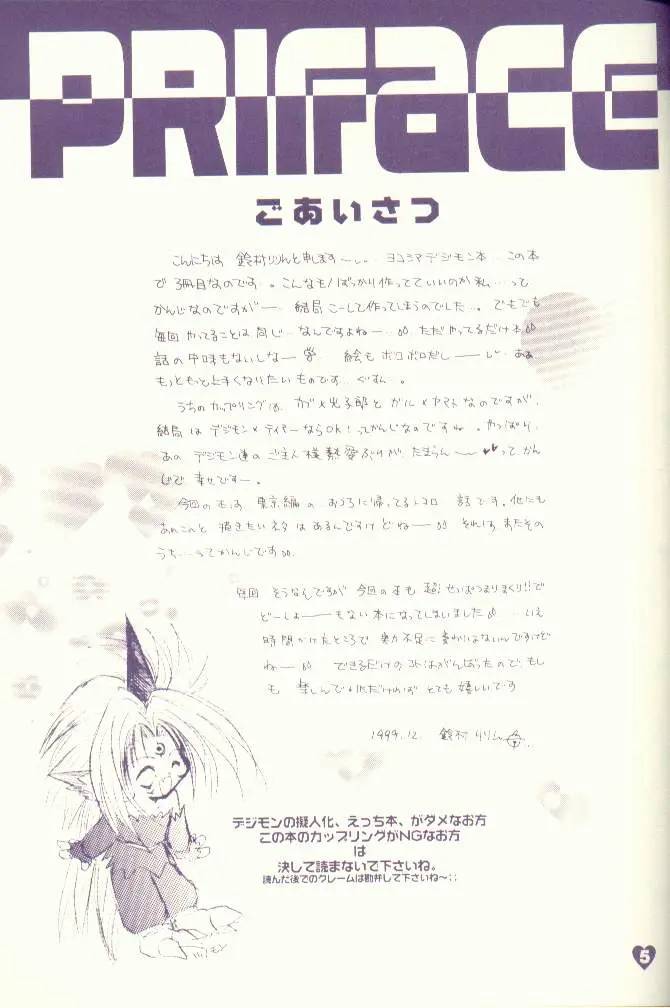 PRIFACE
ごあいさつ
こんにちは 鈴村りりんと申します〜 ヨコシマデジモン本…この本
で3冊目なのです…。こんなモノばっかり作ってていいのか私…って
かんじなのですが── 結局こーして作ってしまうのでした。でもでも
毎回やってることは同じ…なんですよねー… ただやってるだけね
話の中味もないしなー 絵もボロボロだし── ああ
もっともっと上手くなりたいものです…ぐすん…。
うちのカップリングは、カブ×光子郎とガル×ヤマトなのですが、
結局はデジモン×テイマーならOK!ってかんじなのですね。やっぱり、
あのデジモン達のご主人様熱愛ぶりが、たまらん〜♥♥ってかん
じで幸せです〜。
今回の本は、東京編のおうちに帰ってるトコロ 話です。他にも
あれこれと描きたいネタはあるんですけどねー それは、またその
うち…ってかんじです
毎回そうなんですが今回の本も超せっぱつまりまくり!!で
どーしょ──もない本になってしまいました…いえ
時間かけたところで実力不足に変わりはないんですけど
ねー できるだけのコトはがんばったので、もし
も楽しんでいただければとても嬉しいです
1999.12. 鈴村りりん
デジモンの擬人化、えっち本、がダメなお方
この本のカップリングがNGなお方
は
決して読まないで下さいね。
読んだ後でのクレームは勘弁して下さいね〜;;
ツノモン
5